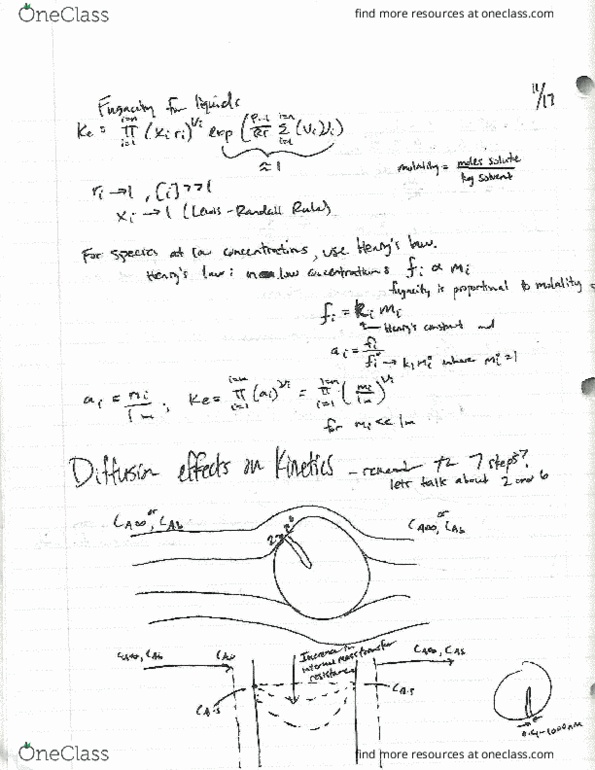 OneClass
find more resources at oneclass.com
11/17
Fugacity for liquids
Ke = ∏ i=1 i=n (xi ri)^νi exp (P-1/RT Σ i=1 i=n (Vi νi))
≈ 1
molality = moles solute / kg solvent
ri → 1, [i] >> 1
xi → 1 (Lewis-Randall Rule)
For species at low concentrations, use Henry's law.
Henry's law: low concentrations fi ∝ mi
fugacity is proportional to molality
fi = ki mi
Henry's constant and
ai = fi / fi° → ki mi° where mi° = 1
ai = mi / 1m ; Ke = ∏ i=1 i=n (ai)^νi = ∏ i=1 i=n (mi / 1m)^νi
for mi << 1m
Diffusion effects on Kinetics - remember 7 steps?
lets talk about 2 and 6
CA∞ or CAb
CA∞ or CAb
2 6
CA∞, CAb
Increase in
internal mass transfer
resistance
CAs
CAs
OneClass
find more resources at oneclass.com